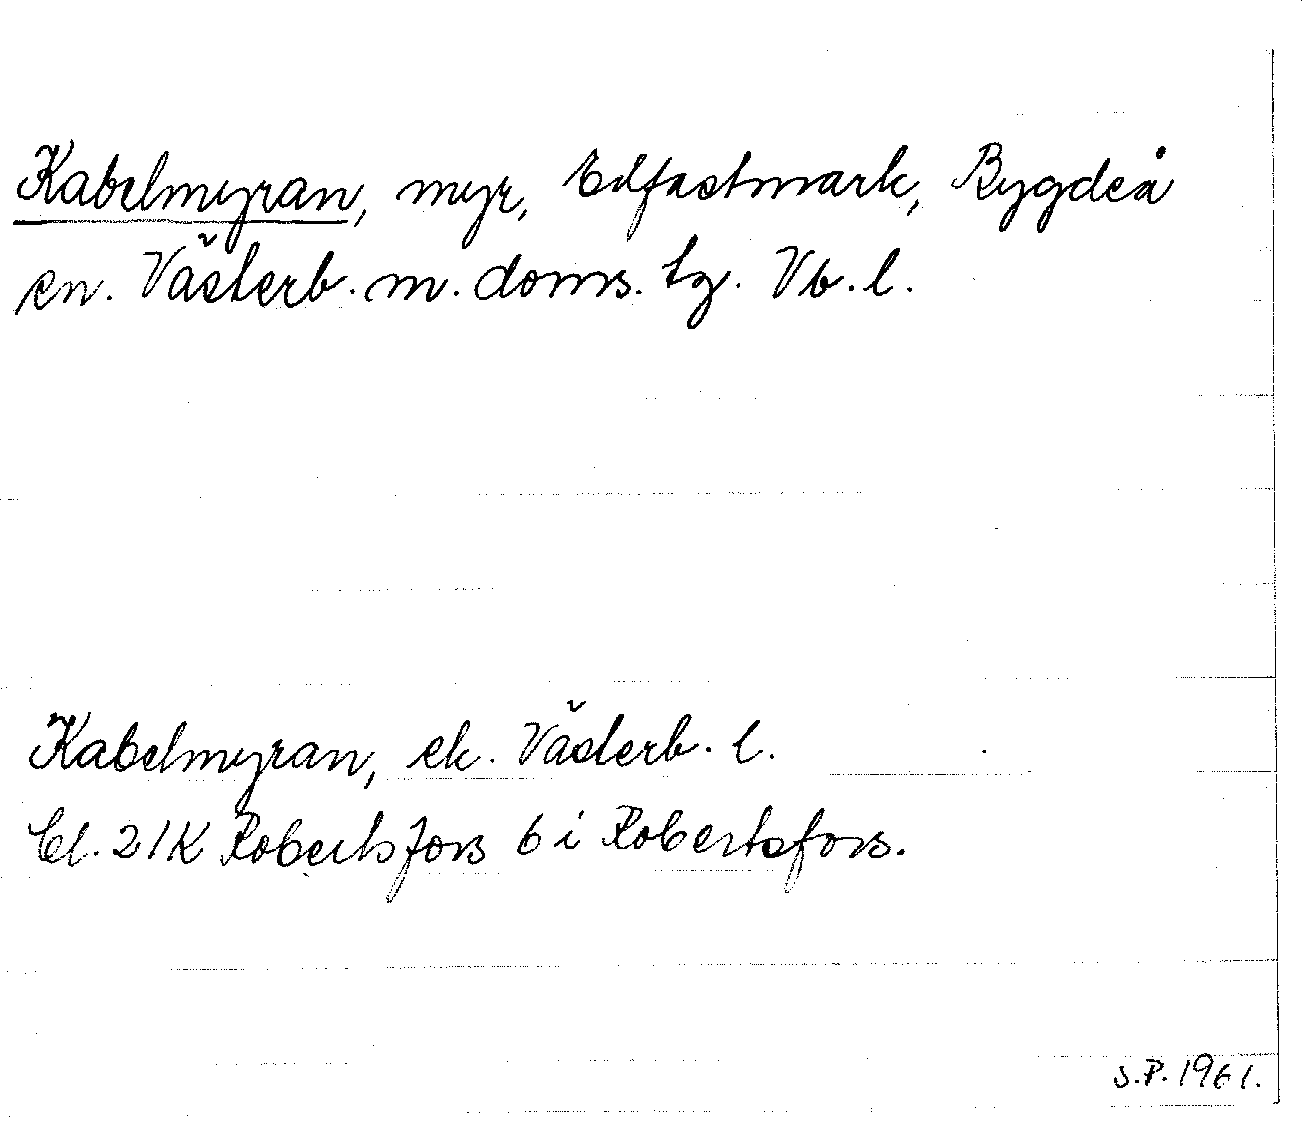 Kabelmyran, myr, Edfastmark, Bygdeå
sn. Västerb. m. doms. tg. Vb. l.
Kabelmyran, ek. Västerb. l.
bl. 21K Robertsfors 6 i Robertsfors.
S.P. 1961.